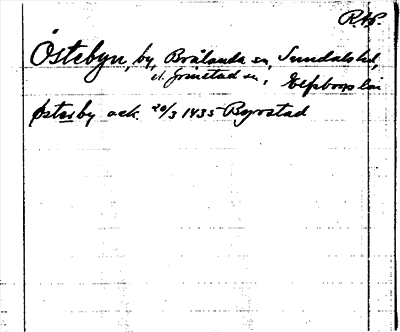 R.AP.
Östebyn, by, Brålanda sn, Sundals hd,
el. Grinstad sn, Elfsborgs län
Østerby ack 20/3 1435 Byrstad